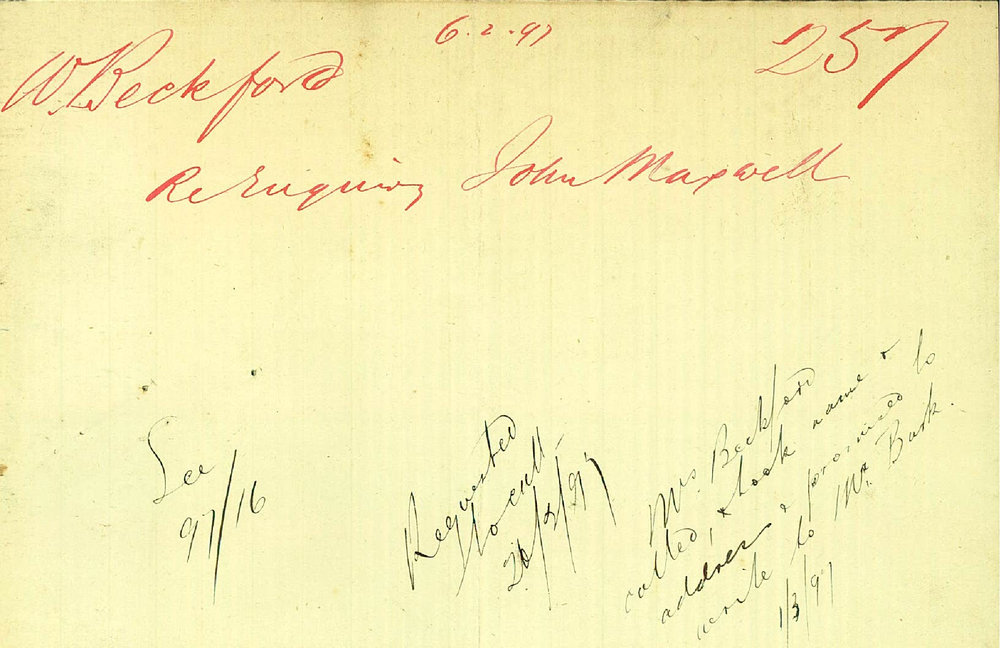 6.2.97
W. Beckford
257
Re Enquiry John Maxwell
See
97/16
Requested
to call
26/2/97
Mrs. Beckford
called, & took name &
address & promised to
write to Mr. Bark.
1/3/97